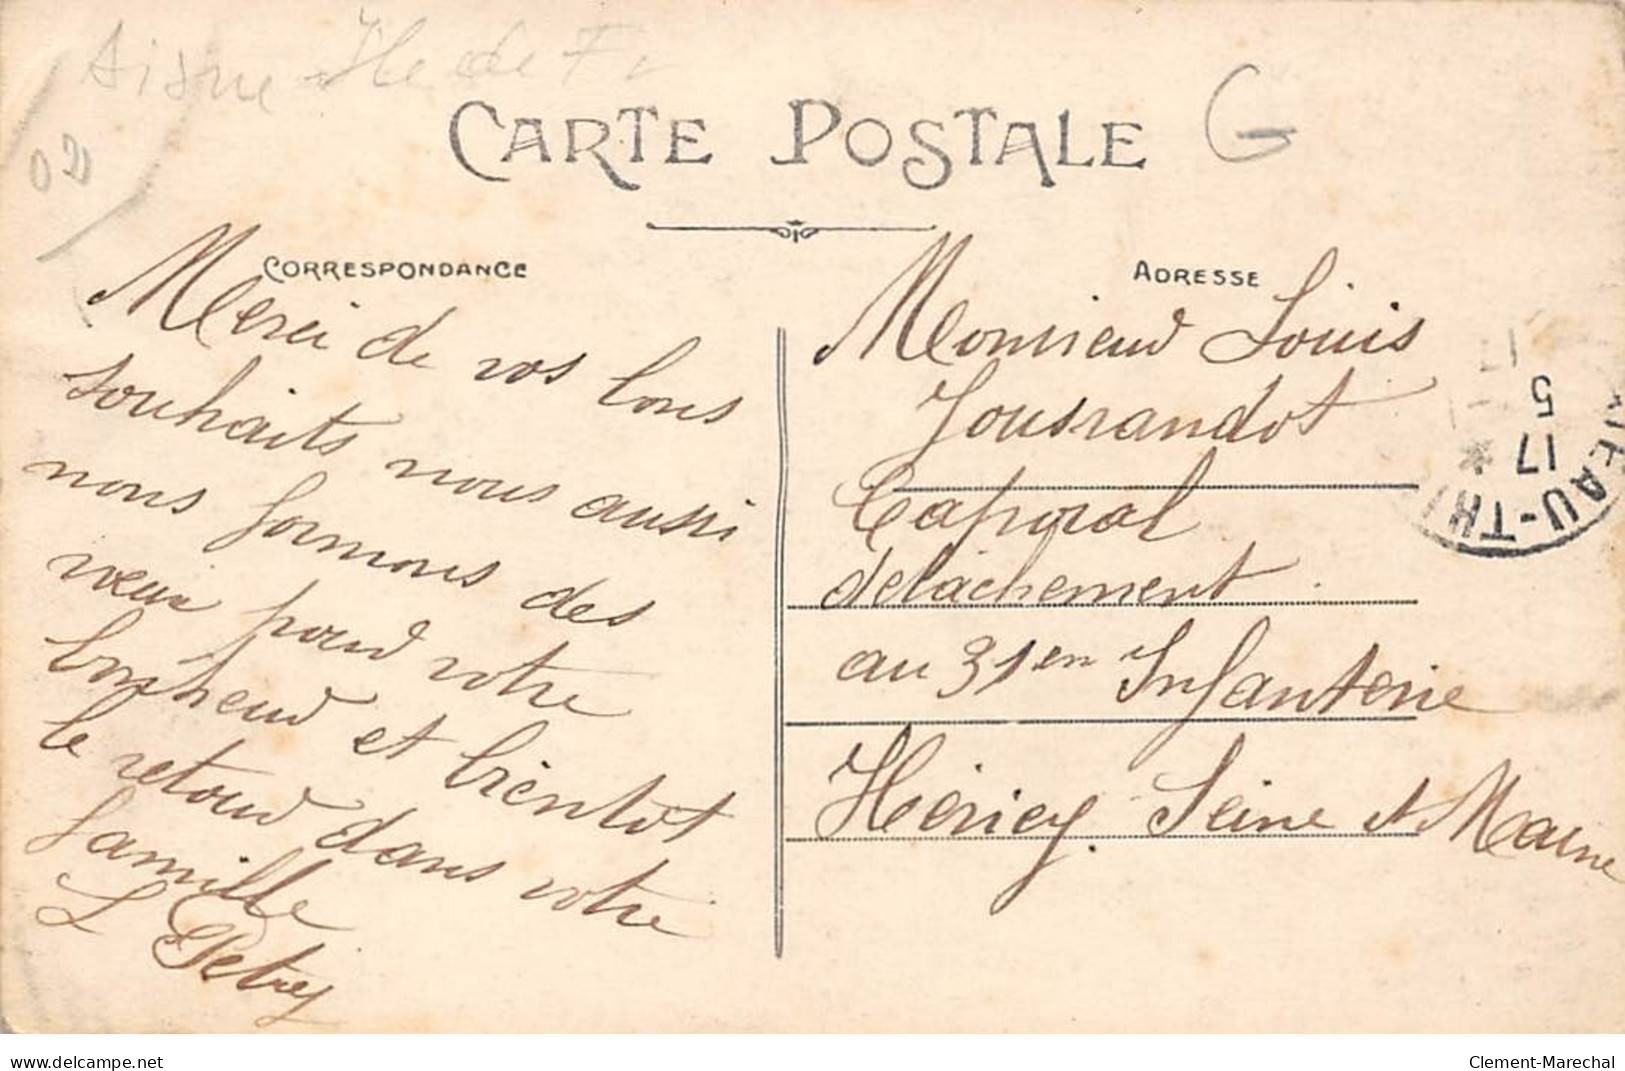 Aisne Ile de Fr
02
G
CARTE POSTALE
CORRESPONDANCE
Merci de vos bons
souhaits nous aussi
nous formons des
vœux pour votre
bonheur et bientot
le retour dans votre
famille
L Petrej
ADRESSE
Monsieur Louis
Jousrandot
Caporal
detachement
au 31en Infanterie
Héricy. Seine et Marne
EAU-TH
17
5
17
delcampe.net
Clement-Marechal